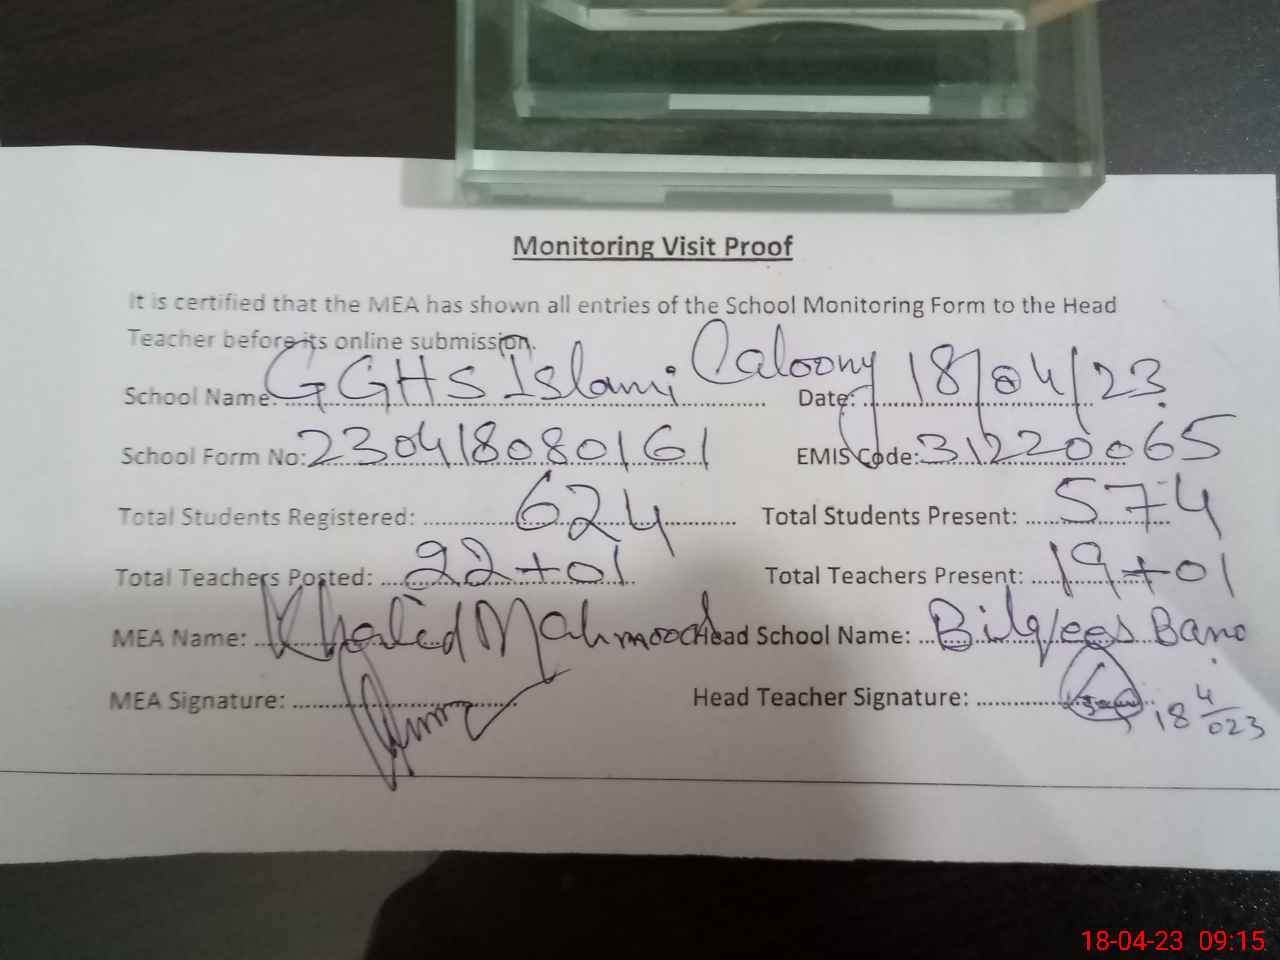 Monitoring Visit Proof
It is certified that the MEA has shown all entries of the School Monitoring Form to the Head
Teacher before its online submission.
School Name: GGHS Islami Caloony Date: 18/04/23
School Form No: 230418080161 EMIS Code: 31220065
Total Students Registered: 624 Total Students Present: 574
Total Teachers Posted: 22+01 Total Teachers Present: 19+01
MEA Name: Khalid Mahmood Head School Name: Bilqees Bano
MEA Signature: Head Teacher Signature: 18 4/023
18-04-23 09:15